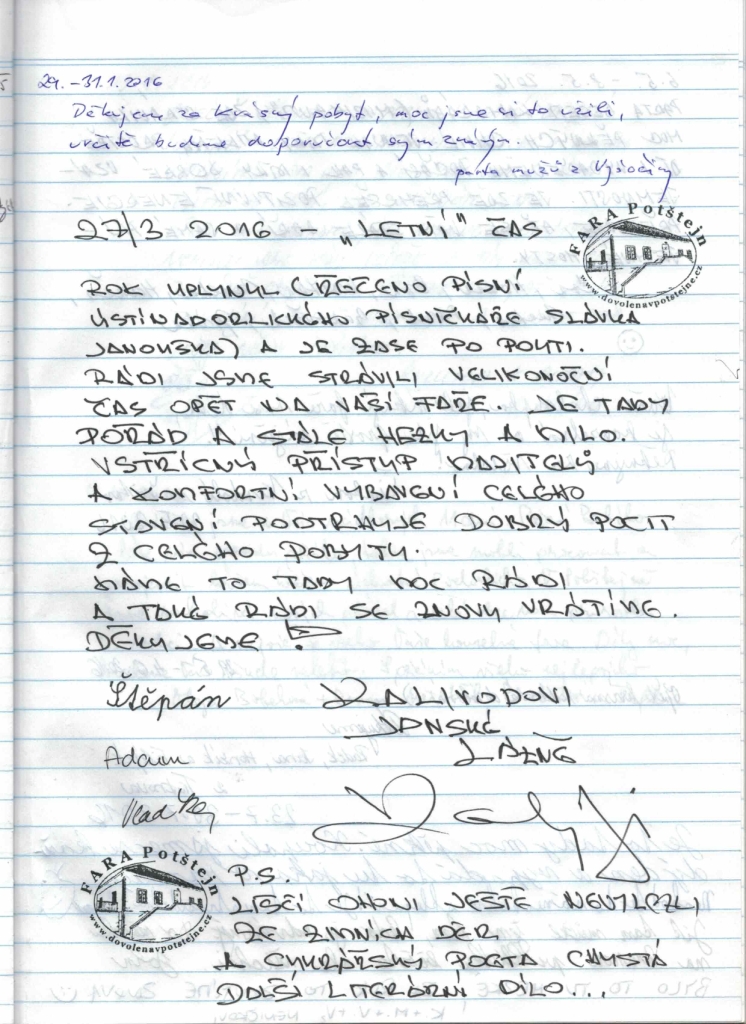 29.-31.1.2016
Děkujeme za krásný pobyt, moc jsme si to užili,
určitě budeme doporučovat svým známým.
parta mužů z Vysočiny
27/3 2016 - „LETNÍ" ČAS
FARA Potštejn
www.dovolenavpotstejne.cz
ROK UPLYNUL (ŘEČENO PÍSNÍ
ÚSTINADORLICKÉHO PÍSNIČKÁŘE SLÁVKA
JANOUŠKA) A JE ZASE PO POUTI.
RÁDI JSME STRÁVILI VELIKONOČNÍ
ČAS OPĚT NA VAŠÍ FAŘE. JE TADY
POŘÁD A STÁLE HEZKY A MILO.
VSTŘÍCNÝ PŘÍSTUP MAJITELŮ
A KOMFORTNÍ VYBAVENÍ CELÉHO
STAVENÍ PODTRHUJE DOBRÝ POCIT
Z CELÉHO POBYTU.
MÁME TO TADY MOC RÁDI
A TAKÉ RÁDI SE ZNOVU VRÁTÍME.
DĚKUJEME!
Štěpán
KALIVODOVI
JÁNSKÉ
LÁZNĚ
Adam
FARA Potštejn
www.dovolenavpotstejne.cz
P.S.
LIŠČÍ OHONI JEŠTĚ NEVYLEZLI
ZE ZIMNÍCH DĚR
A CYKRÁŘSKÝ POETA CHYSTÁ
DALŠÍ LITERÁRNÍ DÍLO...